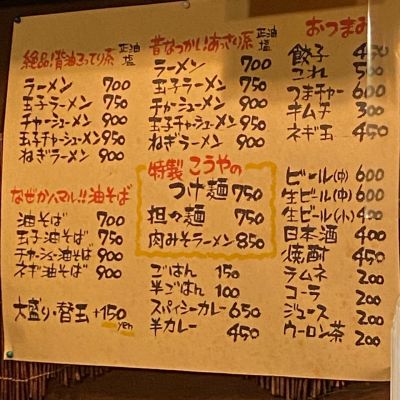 絶品!背油こってり系 正油 塩
ラーメン 700
玉子ラーメン 750
チャーシューメン 900
玉子チャーシューメン 950
ねぎラーメン 900
なぜかハマル!!油そば
油そば 700
玉子油そば 750
チャーシュー油そば 900
ネギ油そば 900
大盛り・替玉 +150 yen
昔なつかし!あっさり系 正油 塩
ラーメン 700
玉子ラーメン 750
チャーシューメン 900
玉子チャーシューメン 950
ねぎラーメン 900
特製 こうやの
つけ麺 750
担々麺 750
肉みそラーメン 850
ごはん 150
半ごはん 100
スパイシーカレー 650
半カレー 450
おつまみ
餃子 450
これ 500
つまチャー 600
キムチ 300
ネギ玉 450
ビール(中) 600
生ビール(中) 600
生ビール(小) 400
日本酒 400
焼酎 450
ラムネ 200
コーラ 200
ジュース 200
ウーロン茶 200